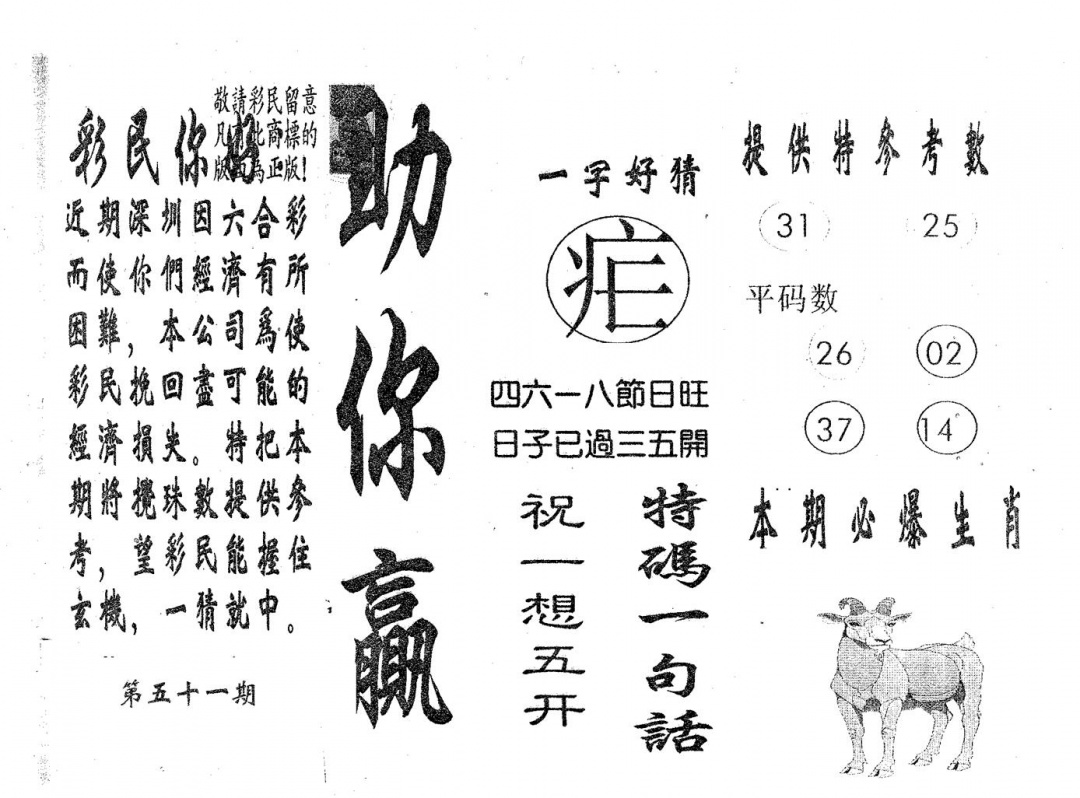 敬請彩民留意
凡有此商標的
版面為正版!
彩民你好
近期深圳因六合彩
而使你們經濟有所
困難，本公司爲使
彩民挽回盡可能的
經濟損失。特把本
期將攪珠數提供參
考，望彩民能握住
玄機，一猜就中。
第五十一期
助你贏
一字好猜
四六一八節日旺
日子已過三五開
特碼一句話
祝一想五开
提供特參考數
31 25
平码数
26 02
37 14
本期必爆生肖